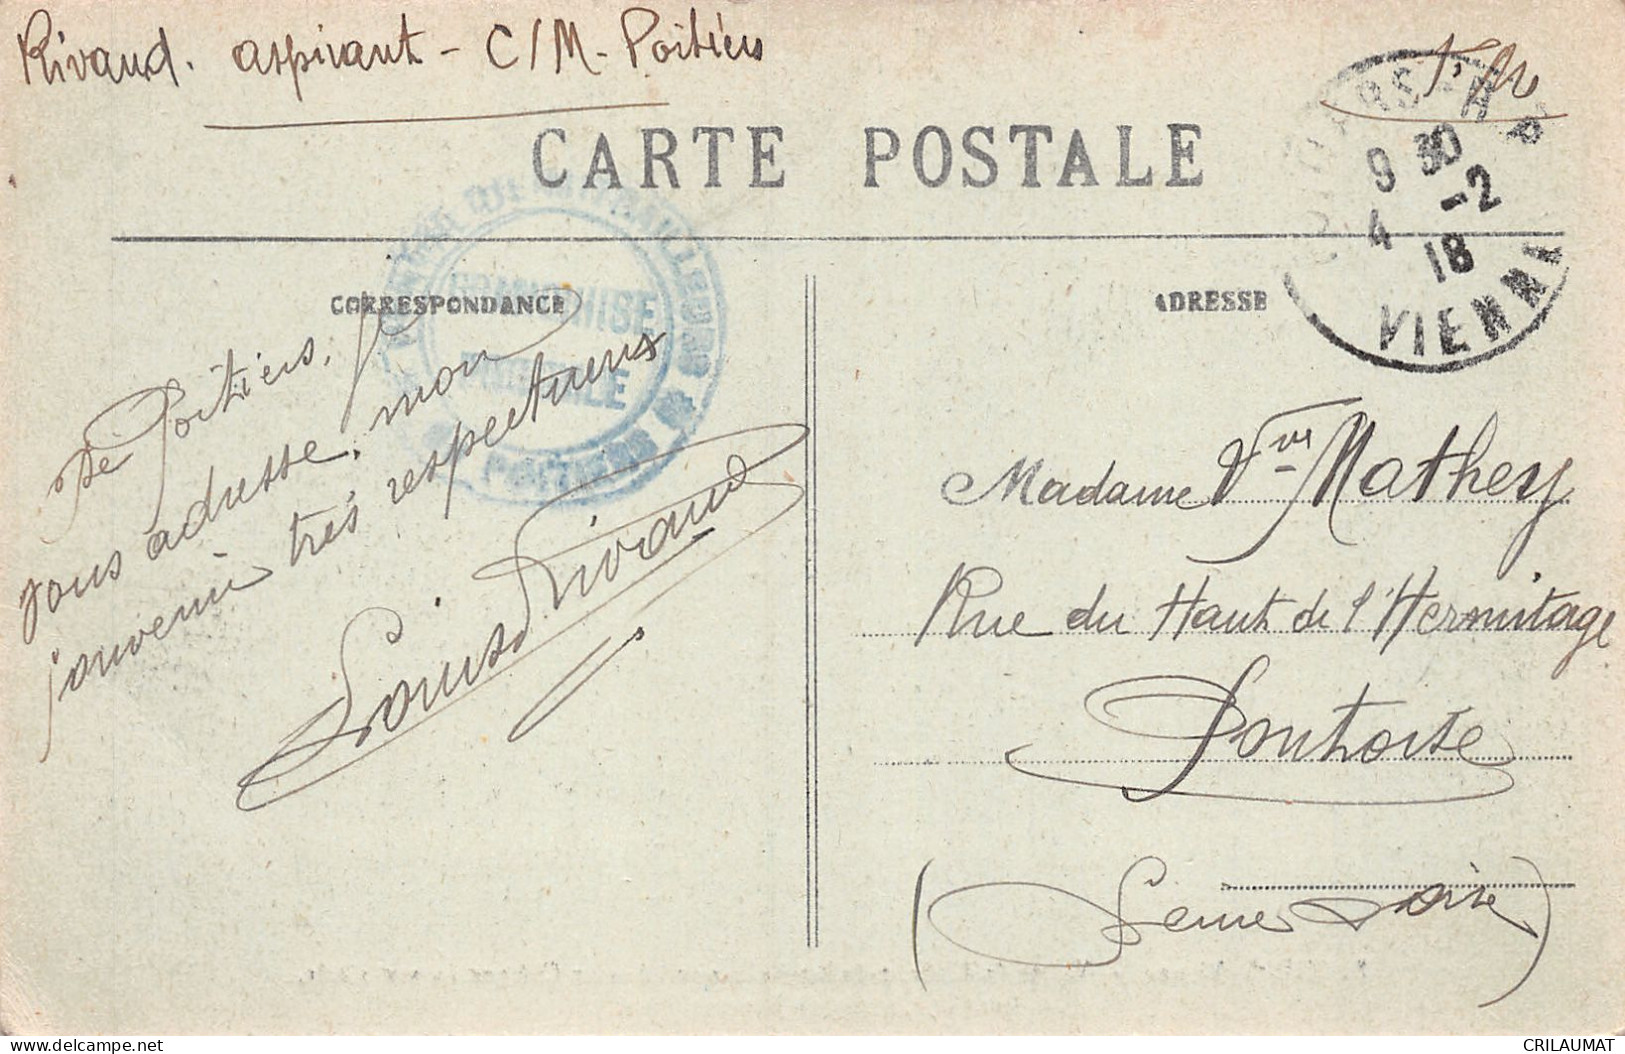 Rivaud. aspirant - C/M - Poitiers
F.M
CARTE POSTALE
9 30
4 -2
18
VIENNE
CORRESPONDANCE
ADRESSE
FRANCHISE
POSTALE
POITIERS
De Poitiers, je
vous adresse, mon
souvenir très respectueux
Louis Rivaud
Madame Vve Mathey
Rue du Haut de l'Hermitage
Pontoise
(Seine & Oise)
CRILAUMAT